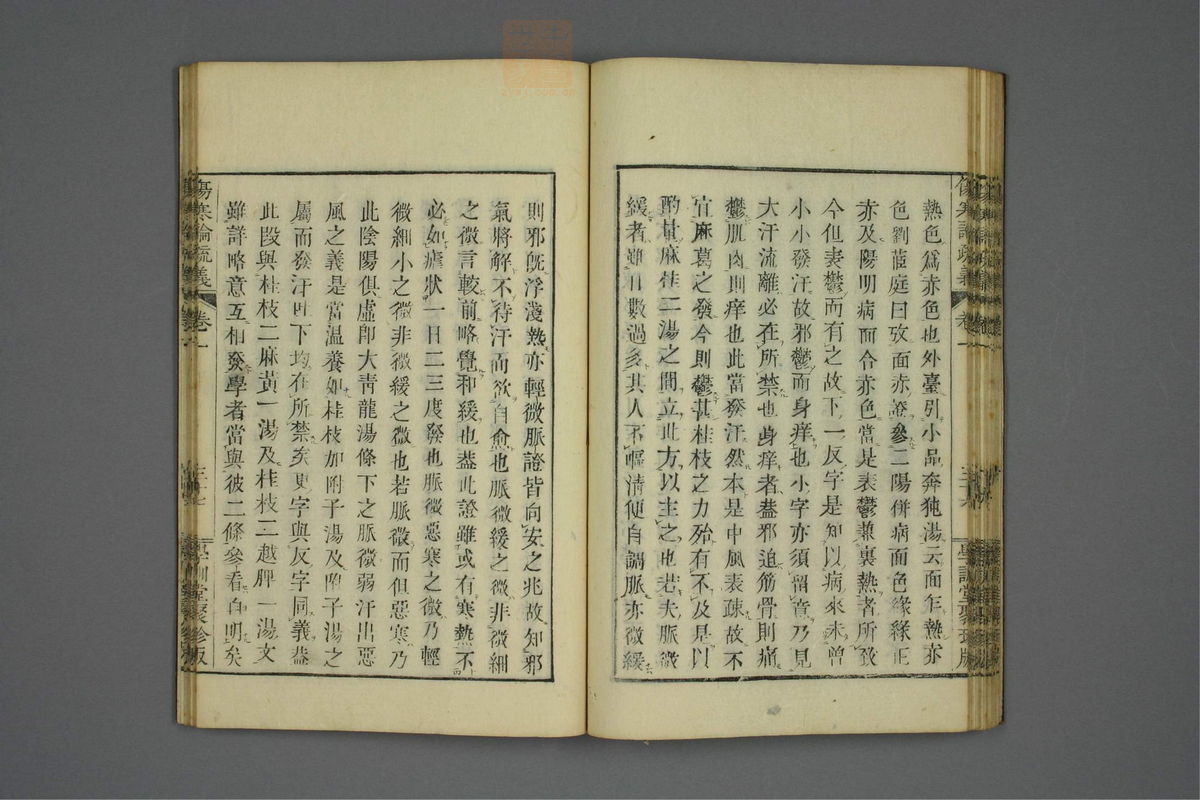 熱色爲赤色也外臺引小品奔㹠湯云面乍熱赤
色劉茝庭曰攷面赤證參二陽併病面色緣緣正
赤及陽明病面合赤色當是表鬱兼裏熱者所致
今但表鬱而有之故下一反字是知以病來未曾
小小發汗故邪鬱而身痒也小字亦須留意乃見
大汗流離必在所禁也身痒者葢邪迫筋骨則痛
鬱肌肉則痒也此當發汗然本是中風表疎故不
宜麻葛之發今則鬱甚桂枝之力殆有不及是以
酌量麻桂二湯之間立此方以主之也若夫脈微
緩者雖日數過多其人不嘔淸便自調脈亦微緩
則邪旣浮淺熱亦輕微脈證皆向安之兆故知邪
氣將解不待汗而欲自愈也脈微緩之微非微細
之微言較前略覺和緩也葢此證雖或有寒熱不
必如瘧狀一日二三度發也脈微惡寒之微乃輕
微細小之微非微緩之微也若脈微而但惡寒乃
此陰陽俱虛卽大靑龍湯條下之脈微弱汗出惡
風之義是當溫養如桂枝加附子湯及附子湯之
屬而發汗吐下均在所禁矣更字與反字同義葢
此段與桂枝二麻黃一湯及桂枝二越脾一湯文
雖詳略意互相發學者當與彼二條參看自明矣
傷寒論疏義 卷一 學訓堂聚珍版